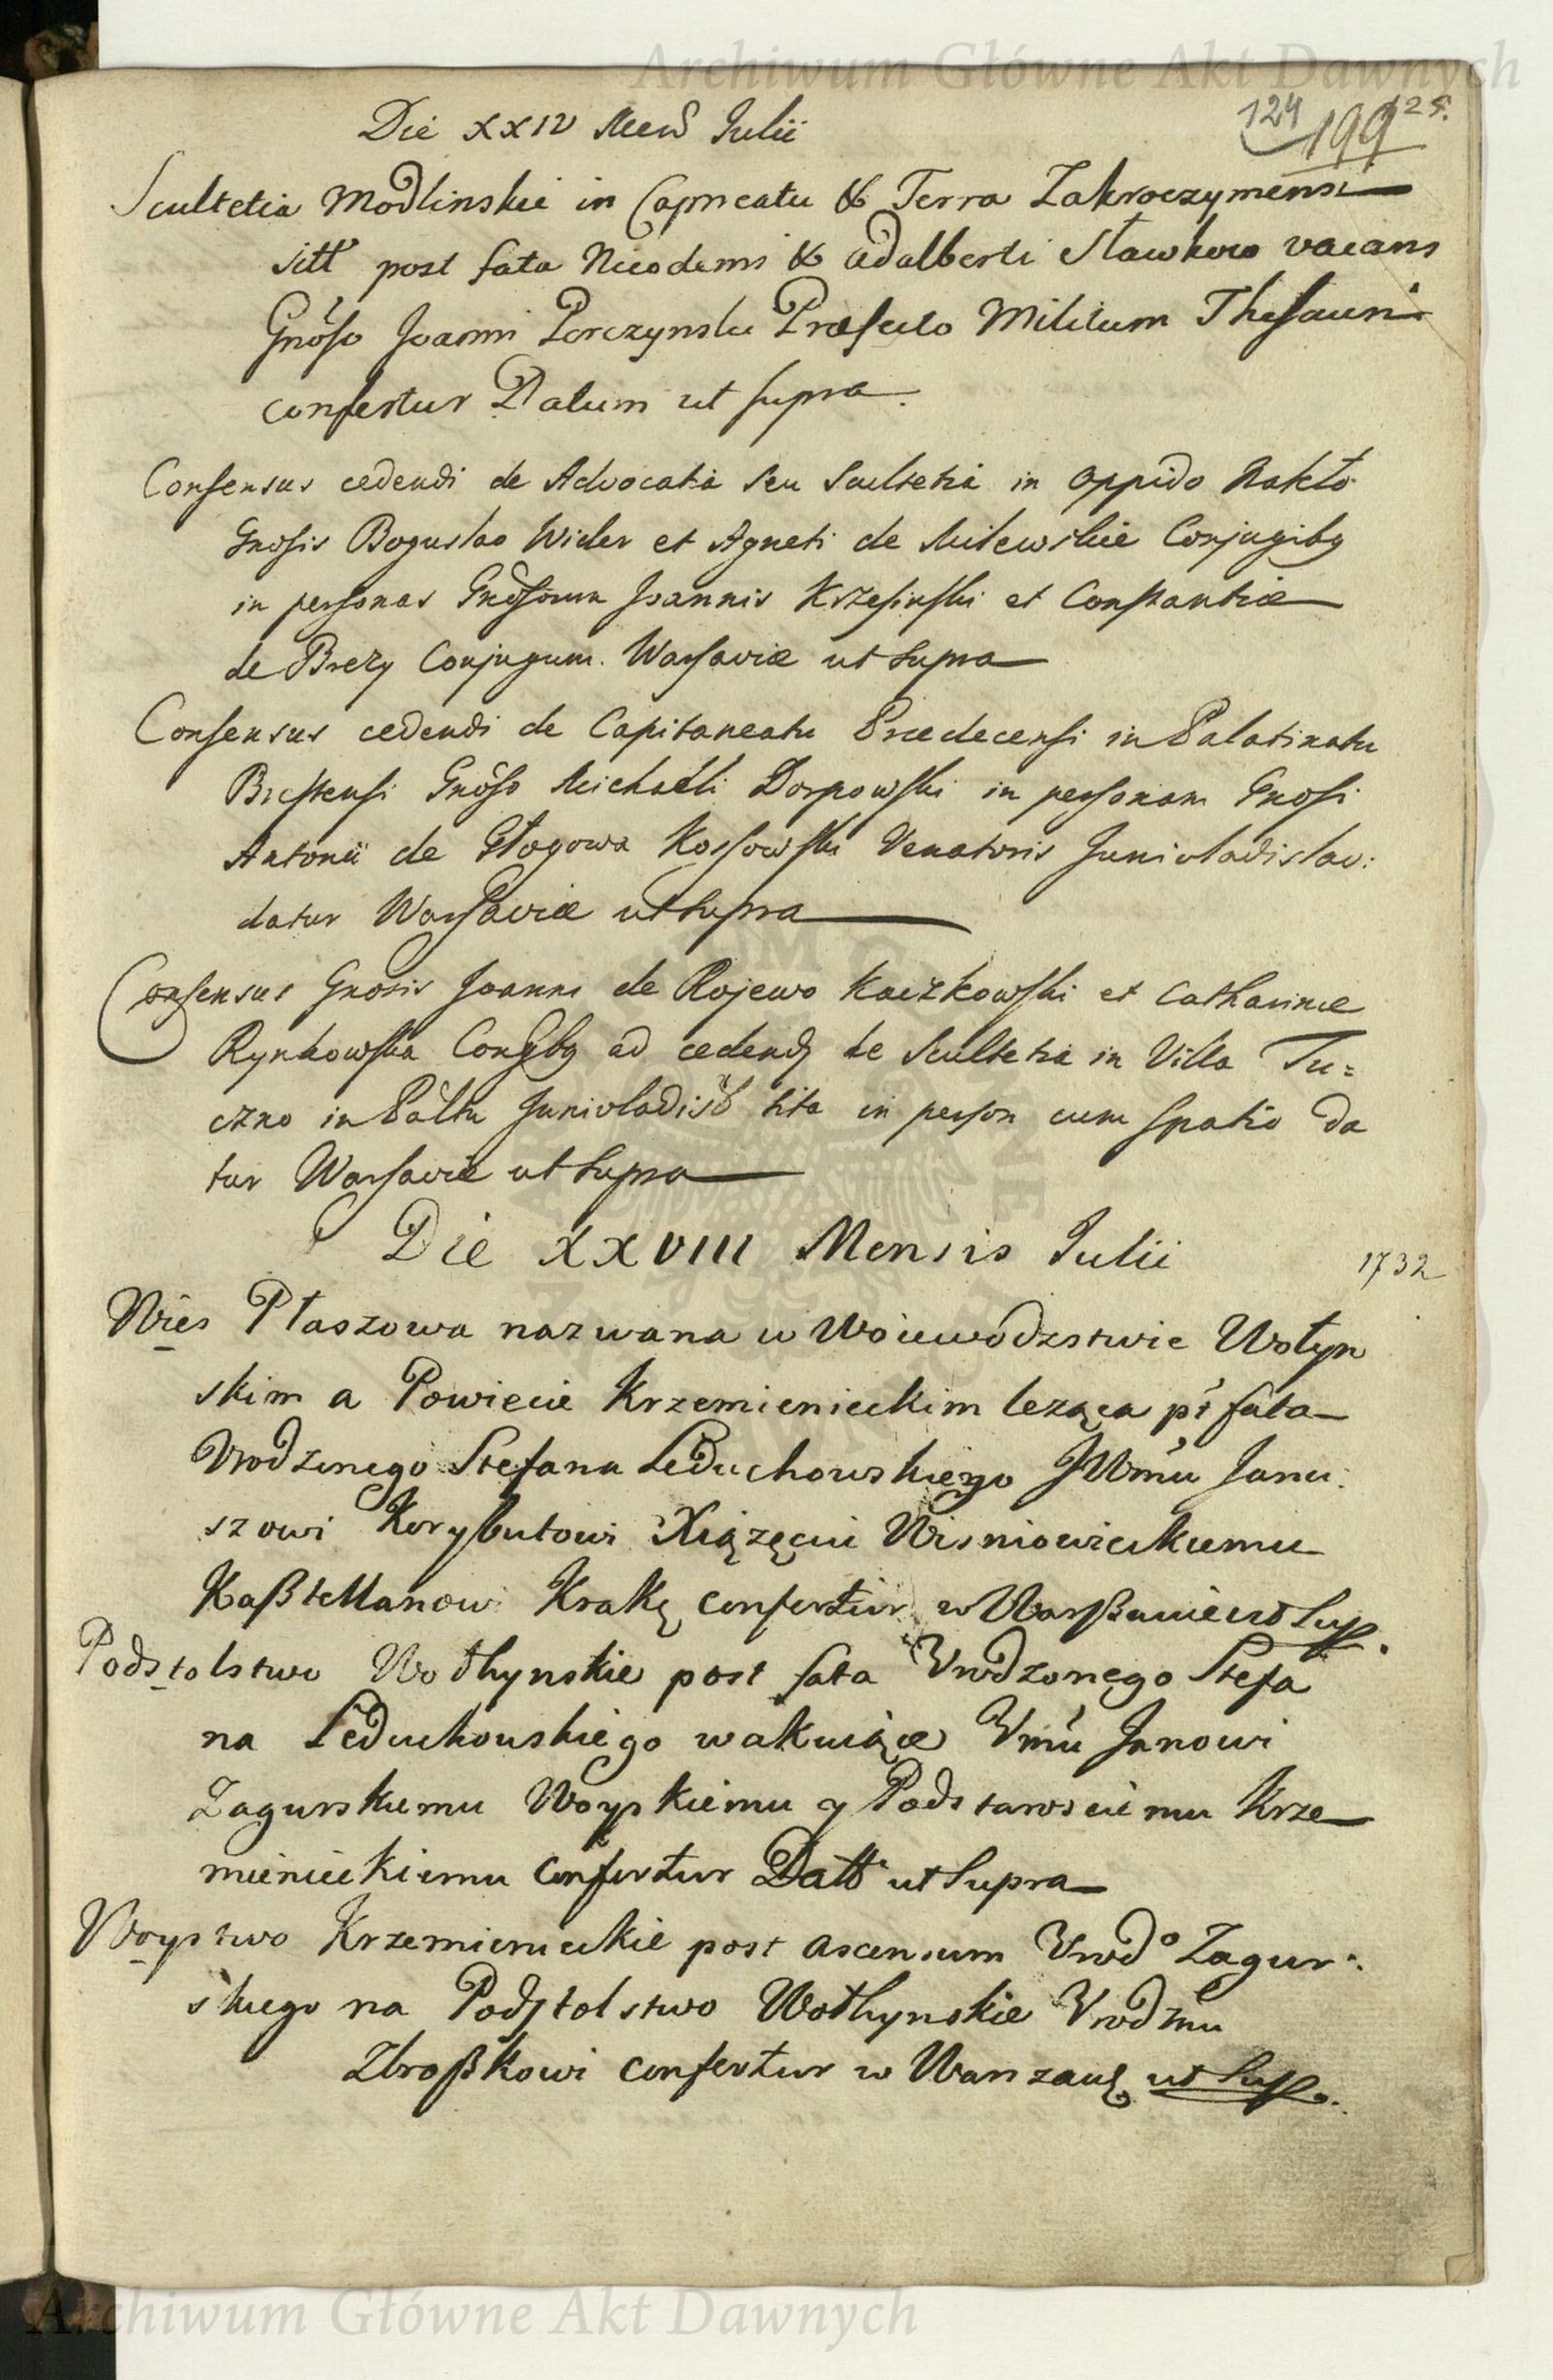 Archiwum Główne Akt Dawnych
124 199 125.
Die XXIV Mens Julii
Scultetia Modlinskie in Capneatu & Terra Zakroczymensi
sitt post fata Nicodemi & Adalberti Sławkow vacans
Gnoso Joanni Porczynski Præfecto Militum Thesauri
confertur Datum ut supra.
Consensus cedendi de Advocatia seu Scultetia in oppido Nakło
Gnosis Boguslao Wider et Agneti de Milewskie Conjugiby
in personas Gnosorum Joannis Krzesinski et Constantiæ
de Brezy Conjugum. Warsaviæ ut supra
Consensus cedendi de Capitaneatu Przedecensi in Palatinatu
Brestensi Gnoso Michaeli Dorpowski in personam Gnosi
Antonii de Głogowa Kossowski Venatoris Junivladislav:
datur Warsaviæ ut supra
Consensus Gnosis Joanni de Rojewo Kaczkowski et Catharinæ
Rynkowska Congby ad cedend de Scultetia in Villa Tu=
czno in Paltu Junivladisl sita in person cum spatio da
tur Warsaviæ ut supra
Die XXVIII Mensis Julii 1732
Wies Ptaszowa nazwana w Woiewodzstwie Wołyn
skim a Powiecie Krzemienieckim leząca pt fata
Vrodzonego Stefana Leduchowskiego JWmu Janu:
szowi Korybutowi Xiązęciu Wisniowieckiemu
Kaßtellanowi Krakę confertur w Warßawie ut sup.
Podstolstwo Wothynskie post fata Vrodzonego Stefa
na Leduchowskiego wakuiące Vmu Janowi
Zagurskiemu Woyskiemu y Podstarosciemu Krze
mienieckiemu confertur Datt ut supra
Woystwo Krzemienieckie post ascensum Vrodo Zagur:
skiego na Podstolstwo Wothynskie Vrodzmu
Zbroßkowi confertur w Warszawę ut sup.
Archiwum Główne Akt Dawnych